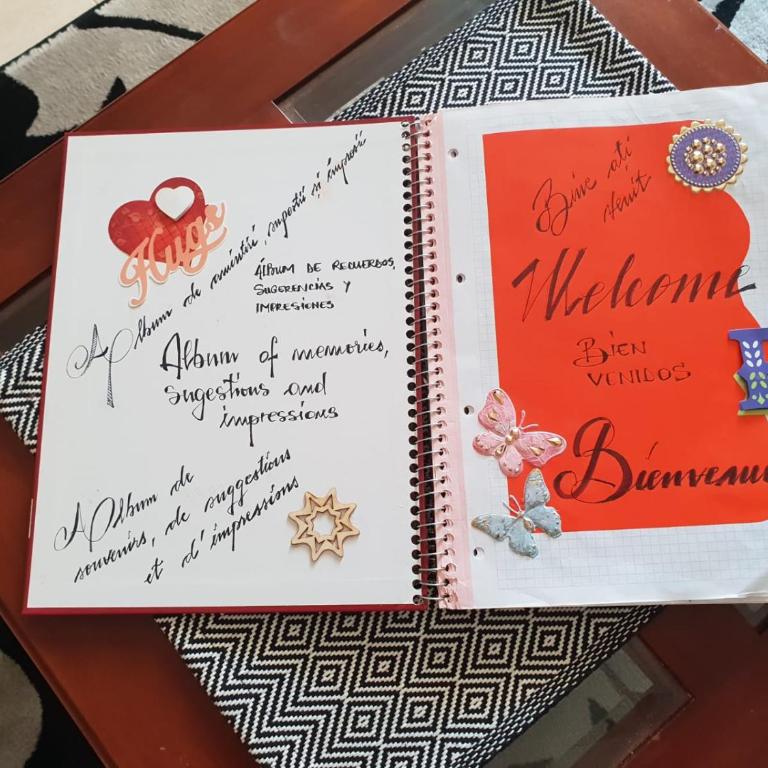 Hugs
Album de amintiri, sugestii și impresii
ÁLBUM DE RECUERDOS,
SUGERENCIAS Y
IMPRESIONES
Album of memories,
sugestions and
impressions
Album de
souvenirs, de suggestions
et d'impressions
Bine ati
venit
Welcome
BIEN
VENIDOS
Bienvenu